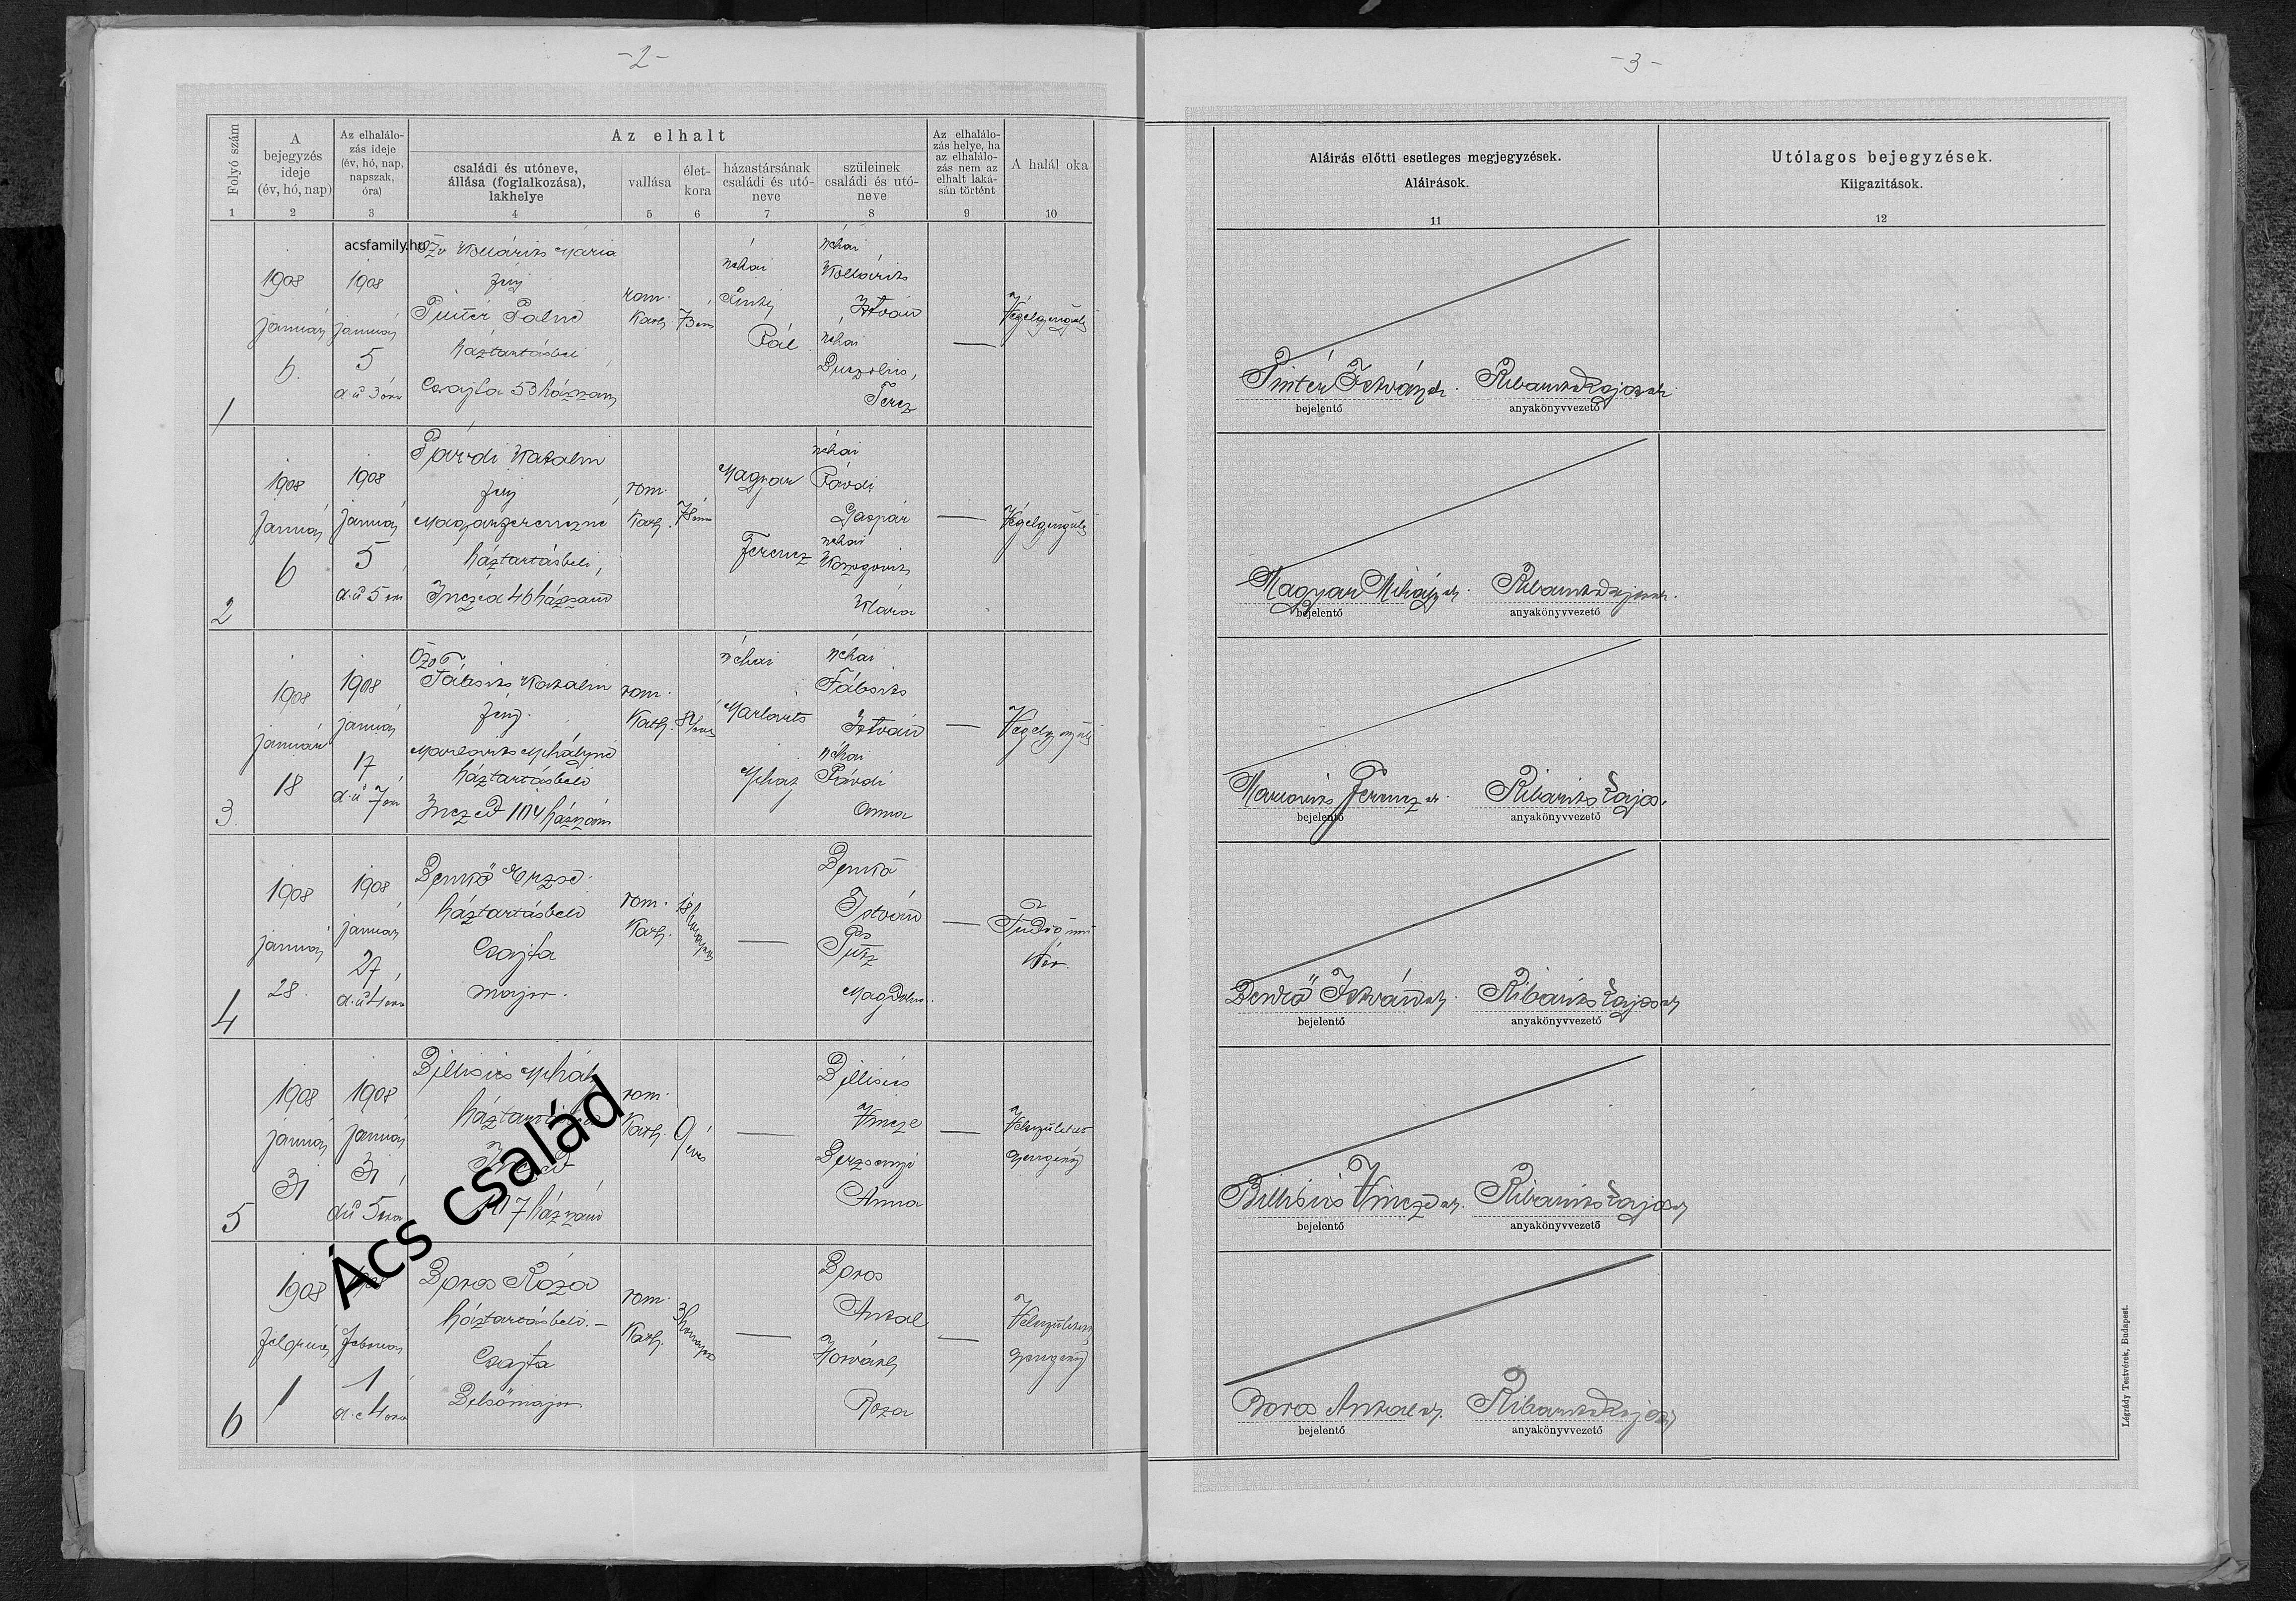 -2-
Folyó szám
A
bejegyzés
ideje
(év, hó, nap)
Az elhalálo-
zás ideje
(év, hó, nap,
napszak,
óra)
Az elhalt
családi és utóneve,
állása (foglalkozása),
lakhelye
vallása
élet-
kora
házastársának
családi és utó-
neve
szüleinek
családi és utó-
neve
Az elhalálo-
zás helye, ha
az elhalálo-
zás nem az
elhalt laká-
sán történt
A halál oka
1
2
3
4
5
6
7
8
9
10
acsfamily.hu
1
1908
január
6.
1908
január
5
d.u 3 óra
Özv Kollárits Mária
férj
Pintér Pálné
háztartásbeli
Csajta 53 házszám
rom.
Kath
73 éves
néhai
Pintér
Pál
néhai
Kollárits
István
néhai
Teréz
—
Végelgyengülés
2
1908
január
6
1908
január
5
d.u 5 óra
Párdi Katalin
férj
Magyar Ferenczné
háztartásbeli,
Inczéd 46 házszám
rom.
Kath.
78 éves
Magyar
Ferencz
néhai
Párdi
Gáspár
néhai
Klára
—
Végelgyengülés
3.
1908
január
18
1908
január
17
d.u 7 óra
Özv
Fábsits Katalin
férj.
Marlovits Mihályné
háztartásbeli
Inczéd 104 házszám
rom.
Kath.
néhai
Marlovits
Mihály
néhai
Fábsits
István
néhai
Párdi
Anna
—
Végelgyengülés
4
1908
január
28.
1908
január
27
d.u 4 óra
Benkő Erzse.
háztartásbeli
Csajta
major.
rom.
Kath.
18 hónapos
—
Benkő
István
Magdolna.
—
Tüdő
5
1908
január
31
1908
január
31
du 5 óra
Billisics Mihály
107 házszám
rom.
Kath.
9 éves
—
Billisics
Vincze
Berzsenyi
Anna
—
Veleszületett
gyengeség
6
1908
február
1
február
1
d.e 4 óra
Boros Róza
háztartásbeli.—
Csajta
Belsőmajor
rom.
Kath.
3 hónapos
—
Boros
Antal
Horváth
Róza
—
Veleszületett
gyengeség
Ács család
-3-
Aláírás előtti esetleges megjegyzések.
Aláírások.
11
Utólagos bejegyzések.
Kiigazítások.
12
Pintér István sk. Ribarits Lajos sk
bejelentő anyakönyvvezető
Magyar Mihály sk. Ribarits Lajos sk.
bejelentő anyakönyvvezető
Marlovits Ferencz sk. Ribarits Lajos.
bejelentő anyakönyvvezető
Benkő István sk. Ribarits Lajos sk
bejelentő anyakönyvvezető
Billisics Vincze sk. Ribarits Lajos sk
bejelentő anyakönyvvezető
Boros Antal sk. Ribarits Lajos sk
bejelentő anyakönyvvezető
Légrády Testvérek, Budapest.